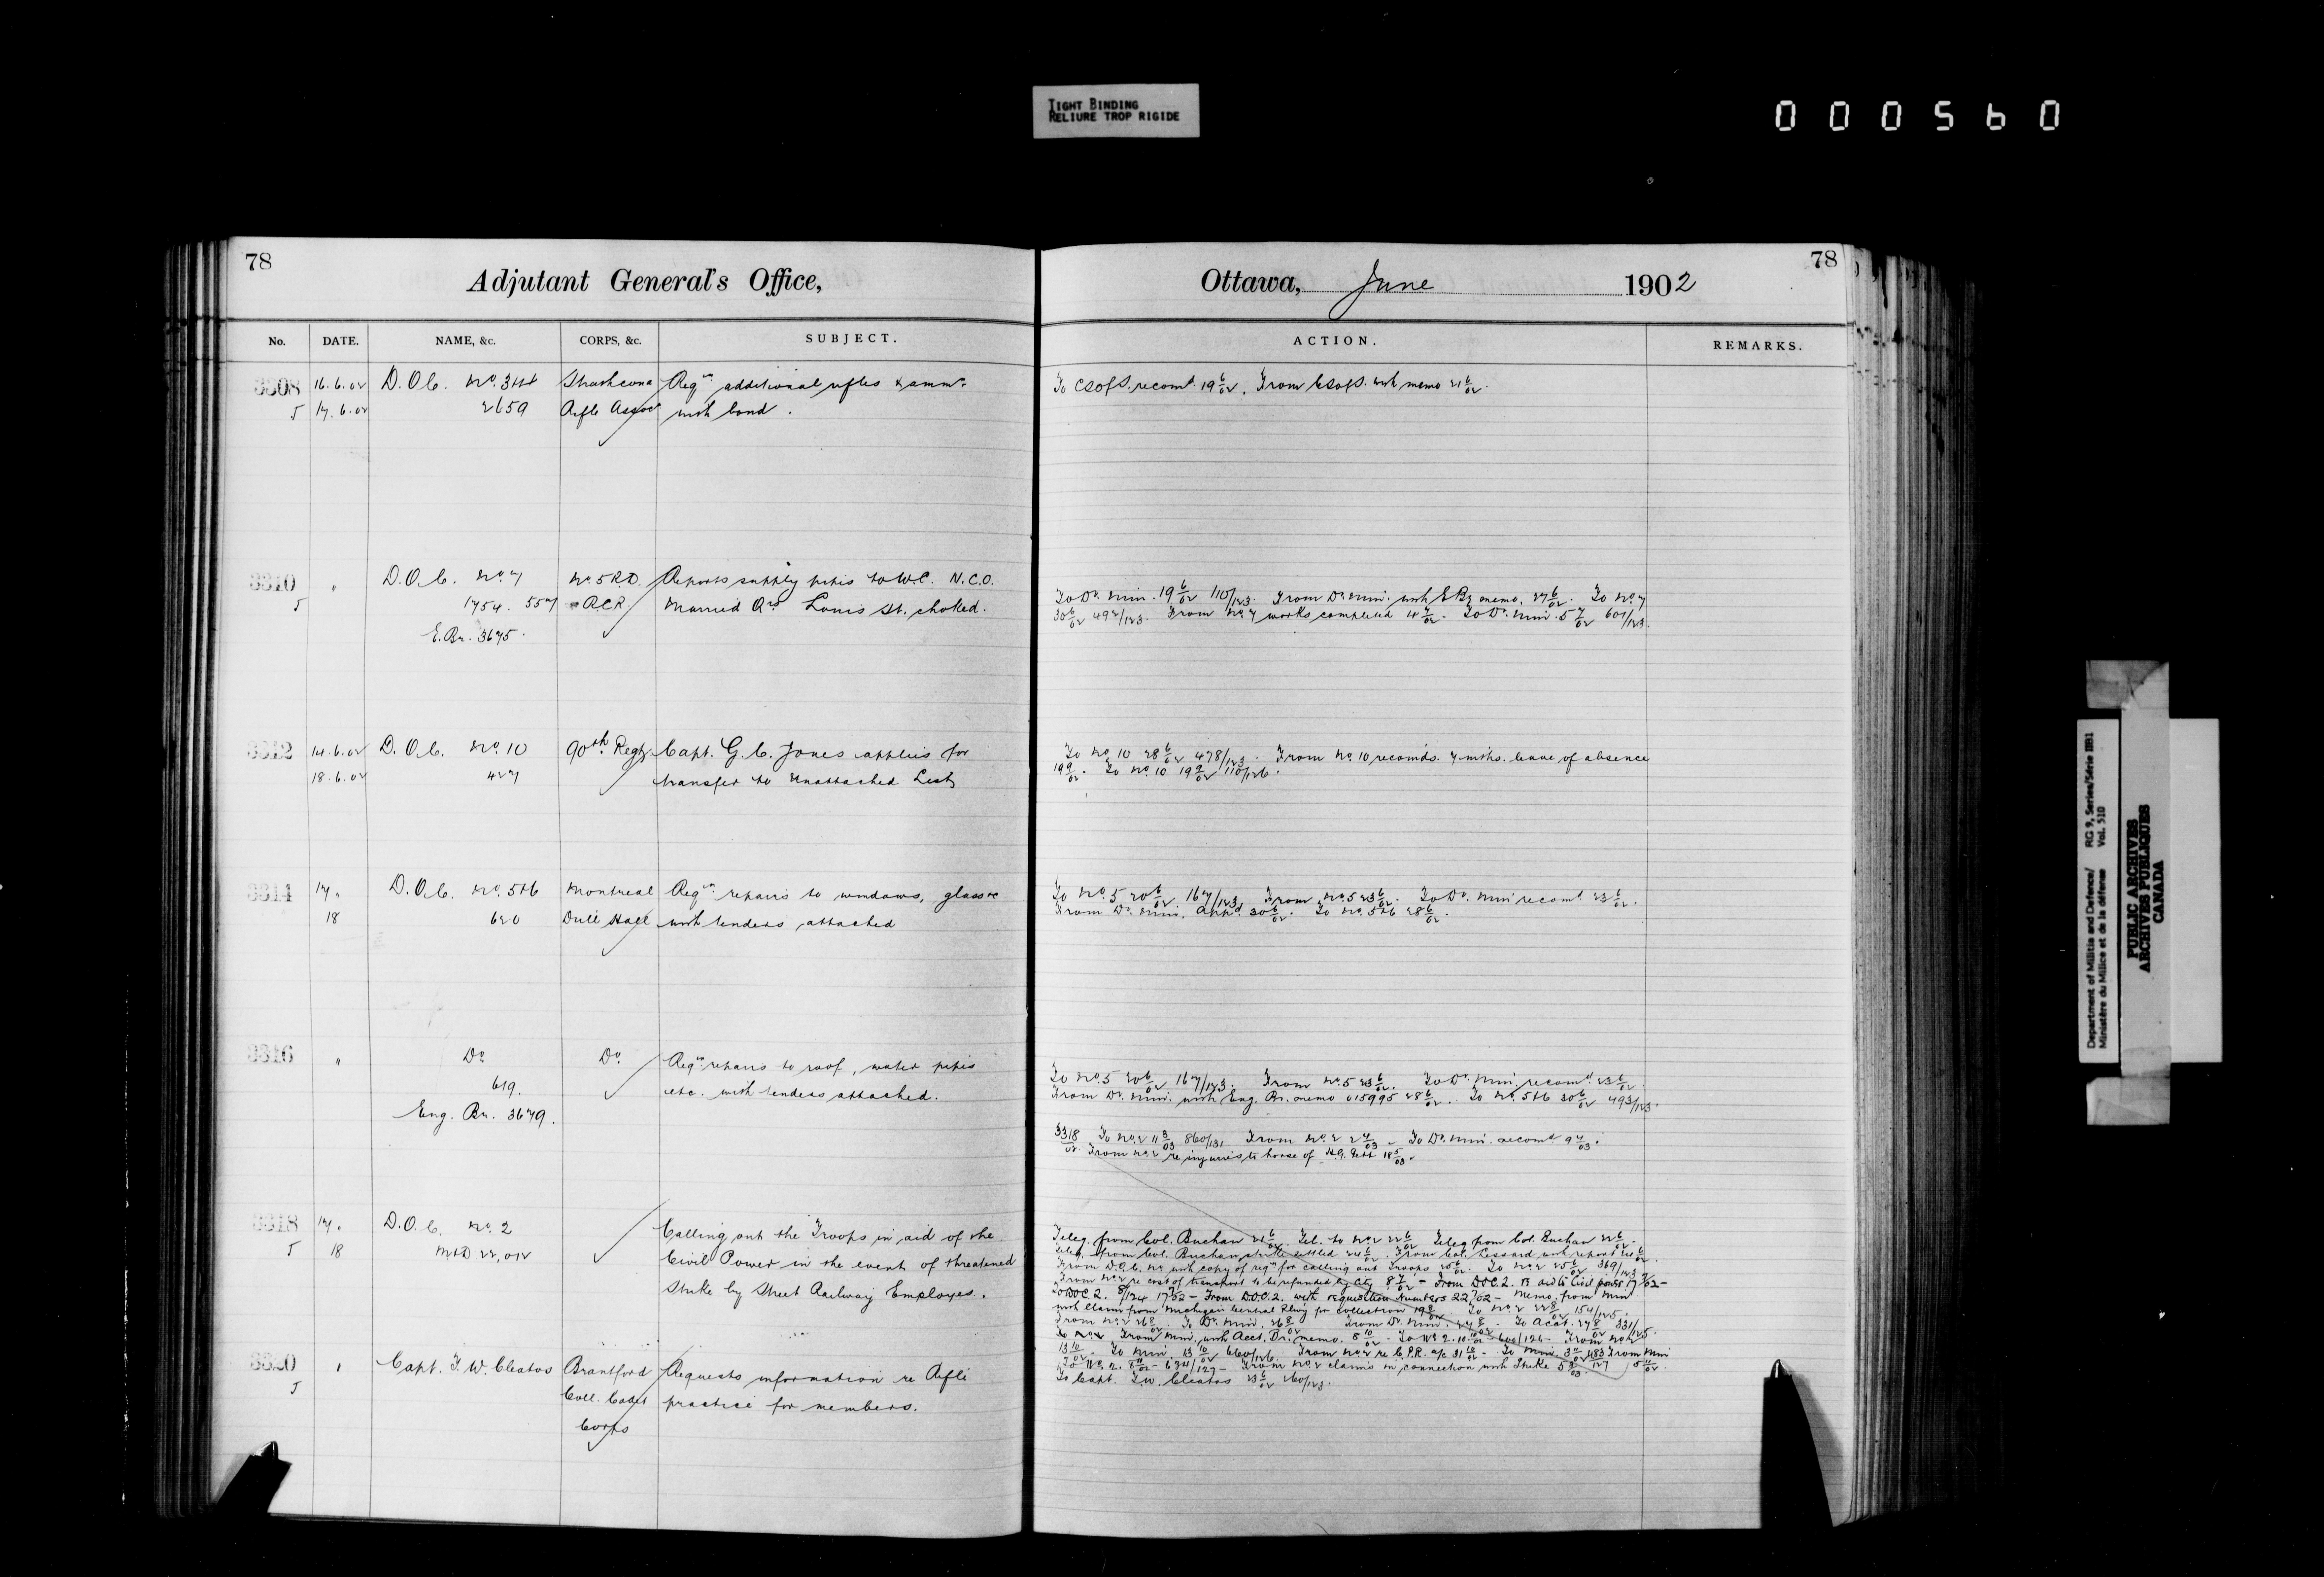 TIGHT BINDING
RELIURE TROP RIGIDE
000560
78
Adjutant General's Office,
No. DATE. NAME, &c. CORPS, &c. SUBJECT.
3308 16.6.02 D.O.C. No. 3&4 Strathcona Reqn additional rifles & ammn
5 17.6.02 2659 Rifle Assocn with bond.
3310 " D.O.C. No. 7 No. 5 R.D. Reports supply pipes to W.C. N.C.O.
5 1754. 557 RCR Married Qrs Louis St. choked.
E.Br. 3675.
3312 14.6.02 D.O.C. No. 10 90th Regt Capt. G.C. Jones applies for
18.6.02 427 transfer to Unattached List
3314 17 " D.O.C. No. 5&6 Montreal Reqn repairs to windows, glass &c
18 620 Drill Hall with tenders attached
3316 " Do Do Reqn repairs to roof, water pipes
619. etc. with tenders attached.
Eng. Br. 3679.
3318 17 " D.O.C. No. 2 Calling out the Troops in aid of the
5 18 M&D 22,012 Civil Power in the event of threatened
Strike by Street Railway Employes.
3320 " Capt. T.W. Brantford Requests information re Rifle
5 Coll. Cadet practice for members.
Corps
78
Ottawa, June 1902
ACTION. REMARKS.
To CSofS. recomd 19 6/02. From CSofS. with memo 21 6/02.
To D. Min. 19 6/02 110/123. From D. Min. with E Br memo. 27 6/02. To No. 7
30 6/02 492/123. From No. 7 works completed 4 7/02. To D. Min. 5 7/02 607/123.
To No. 10 28 6/02 478/123. From No. 10 recomds. 7 mths. leave of absence
19 9/02. To No. 10 19 9/02 110/126.
To No. 5 20 6/02 167/123. From No. 5 23 6/02. To D. Min recomd 23 6/02.
From D. Min. appd 30 6/02. To No. 5&6 28 6/02.
To No. 5 20 6/02 167/123. From No. 5 23 6/02. To D. Min. recomd 23 6/02
From D. Min. with Eng. Br. memo 015995 28 6/02. To No. 5&6 30 6/02 493/123.
3318/02 To No. 2 11 3/03 860/131. From No. 2 2 4/03 - To D. Min. recomd 9 4/03.
From No. 2 re injuries to horse of 18 5/03.
Teleg. from Col. Buchan 21 6/02. Tel. to No. 2 22 6/02 Teleg from Col. Buchan 22 6/02.
Teleg. from Col. Buchan strike settled 24 6/02. From Col. Lessard with report
From D.O.C. No. 2 with copy of reqn for calling out Troops 25 6/02. To No. 2 25 6/02 369/123
From No. 2 re cost of transport to be refunded by City 8 7/02 - From D.O.C. 2. re aid to Civil power
To DOC 2. 8/124 17 7/02 - From D.O.C. 2. with requisition Numbers 22 7/02 - Memo. from Mini
with claim from Michigan Central Rlwy for collection 19 8/02. To No. 2 22 8/02 154/125.
From No. 2 26 8/02. To D. Min. 26 8/02. From D. Min. 27 8/02. To Acct. 27 8/02 331/125.
From Mini, with Acct. Br. memo. 8 10/02 - To No 2. 10 10/02 600/126 - From No. 2
13 10/02 - To Min. 13 10/02 660/126. From No. 2 re C.P.R. a/c 31 10/02 - To Min. 3 11/02 483/127 From Mini 5 11/02.
To No. 2. 634/127 - From No. 2 claims in connection with Strike
To Capt. T.W. 23 6/02 260/123.
Department of Militia and Defence/ RG 9, Series/Série IIB1
Ministère du Milice et de la défense Vol. 510
PUBLIC ARCHIVES
ARCHIVES PUBLIQUES
CANADA